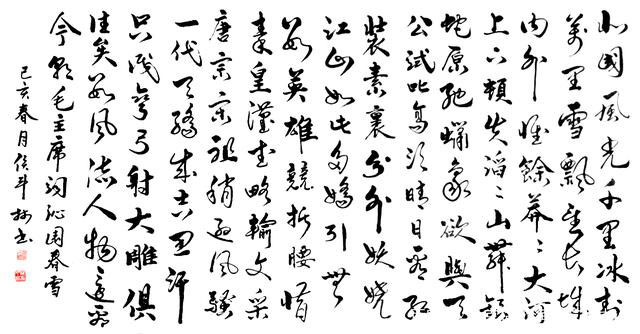 北國風光千里冰封
萬里雪飄望长城
内外惟餘莽〻大河
上下顿失滔〻山舞銀
蛇原驰蠟象欲與天
公试比高须晴日看红
装素裹分外妖娆
江山如此多娇引無
数英雄競折腰惜
秦皇漢武略輸文采
唐宗宋祖稍逊风骚
一代天骄成吉思汗
只识弯弓射大雕俱
往矣数风流人物还看
今朝毛主席词沁园春雪
己亥春月侯书